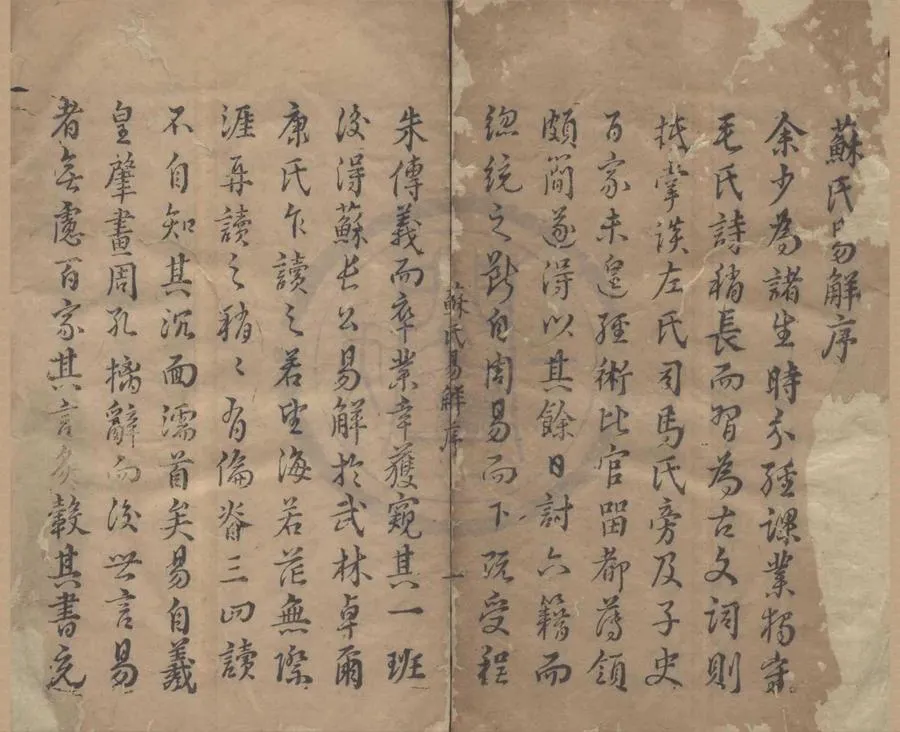 蘇氏易解序
余少為諸生時分經課業獨受
毛氏詩稍長而習為古文詞則
抵掌談左氏司馬氏旁及子史
百家未遑經術比官留都薄領
頗簡遂得以其餘日討六籍而
總統之斷自周易而下既受程
蘇氏易解序
一
朱傳義而卒業幸獲窺其一班
後得蘇長公易解於武林卓爾
康氏乍讀之若望海若茫無際
涯再讀之稍〻有倫脊三四讀
不自知其沉面濡首矣易自羲
皇肇畫周孔摛辭而後世言易
者無慮百家其言炙轂其書充